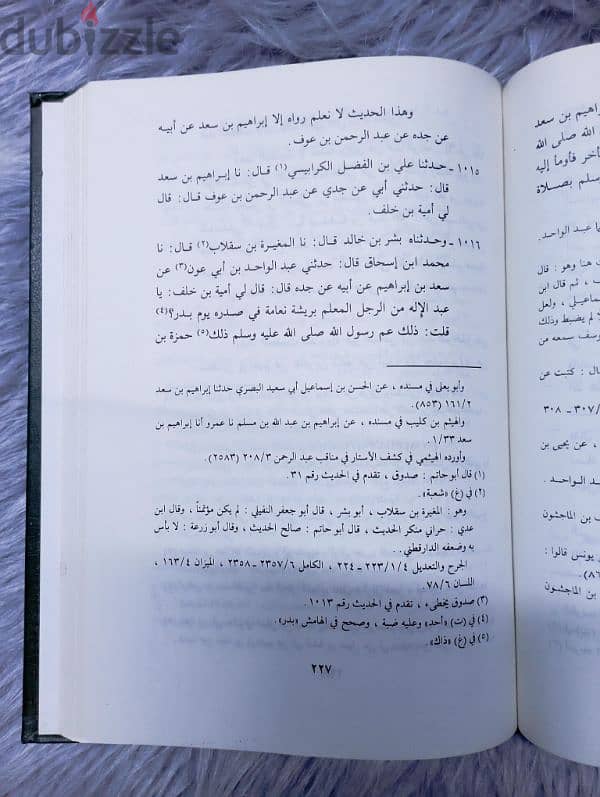 dubizzle
وهذا الحديث لا نعلم رواه إلا إبراهيم بن سعد عن أبيه
عن جده عن عبد الرحمن بن عوف .
١٠١٥ ـ حدثنا علي بن الفضل الكرابيسي (١) قال : نا إبراهيم بن سعد
قال : حدثني أبي عن جدي عن عبد الرحمن بن عوف قال : قال
لي أمية بن خلف .
١٠١٦ ـ وحدثناه بشر بن خالد قال : نا المغيرة بن سقلاب (٢) قال : نا
محمد ابن إسحاق قال : حدثني عبد الواحد بن أبي عون (٣) عن
سعد بن إبراهيم عن أبيه عن جده قال : قال لي أمية بن خلف : يا
عبد الإله من الرجل المعلم بريشة نعامة في صدره يوم بدر ؟ (٤)
قلت : ذلك عم رسول الله صلى الله عليه وسلم ذلك (٥) حمزة بن
وأبو يعلى في مسنده ، عن الحسن بن إسماعيل أبي سعيد البصري حدثنا إبراهيم بن سعد
١٦١/٢ (٨٥٣) .
والهيثم بن كليب في مسنده ، عن إبراهيم بن عبد الله بن مسلم نا عمرو أنا إبراهيم بن
سعد ١/٣٣ .
وأورده الهيثمي في كشف الأستار في مناقب عبد الرحمن ٢٠٨/٣ (٢٥٨٣) .
(١) قال أبو حاتم : صدوق ، تقدم في الحديث رقم ٣١ .
(٢) في (غ) «شعبة» .
وهو : المغيرة بن سقلاب ، أبو بشر ، قال أبو جعفر النفيلي : لم يكن مؤتمناً ، وقال ابن
عدي : حراني منكر الحديث ، قال أبو حاتم : صالح الحديث ، وقال أبو زرعة : لا بأس
به وضعفه الدارقطني .
الجرح والتعديل ٢٢٣/١/٤ ـ ٢٢٤ ، الكامل ٢٣٥٧/٦ ـ ٢٣٥٨ ، الميزان ١٦٣/٤ ،
اللسان ٧٨/٦ .
(٣) صدوق يخطىء ، تقدم في الحديث رقم ١٠١٣ .
(٤) في (ت) «أحد» وعليه ضبة ، وصحح في الهامش «بدر» .
(٥) في (غ) «ذاك» .
٢٢٧